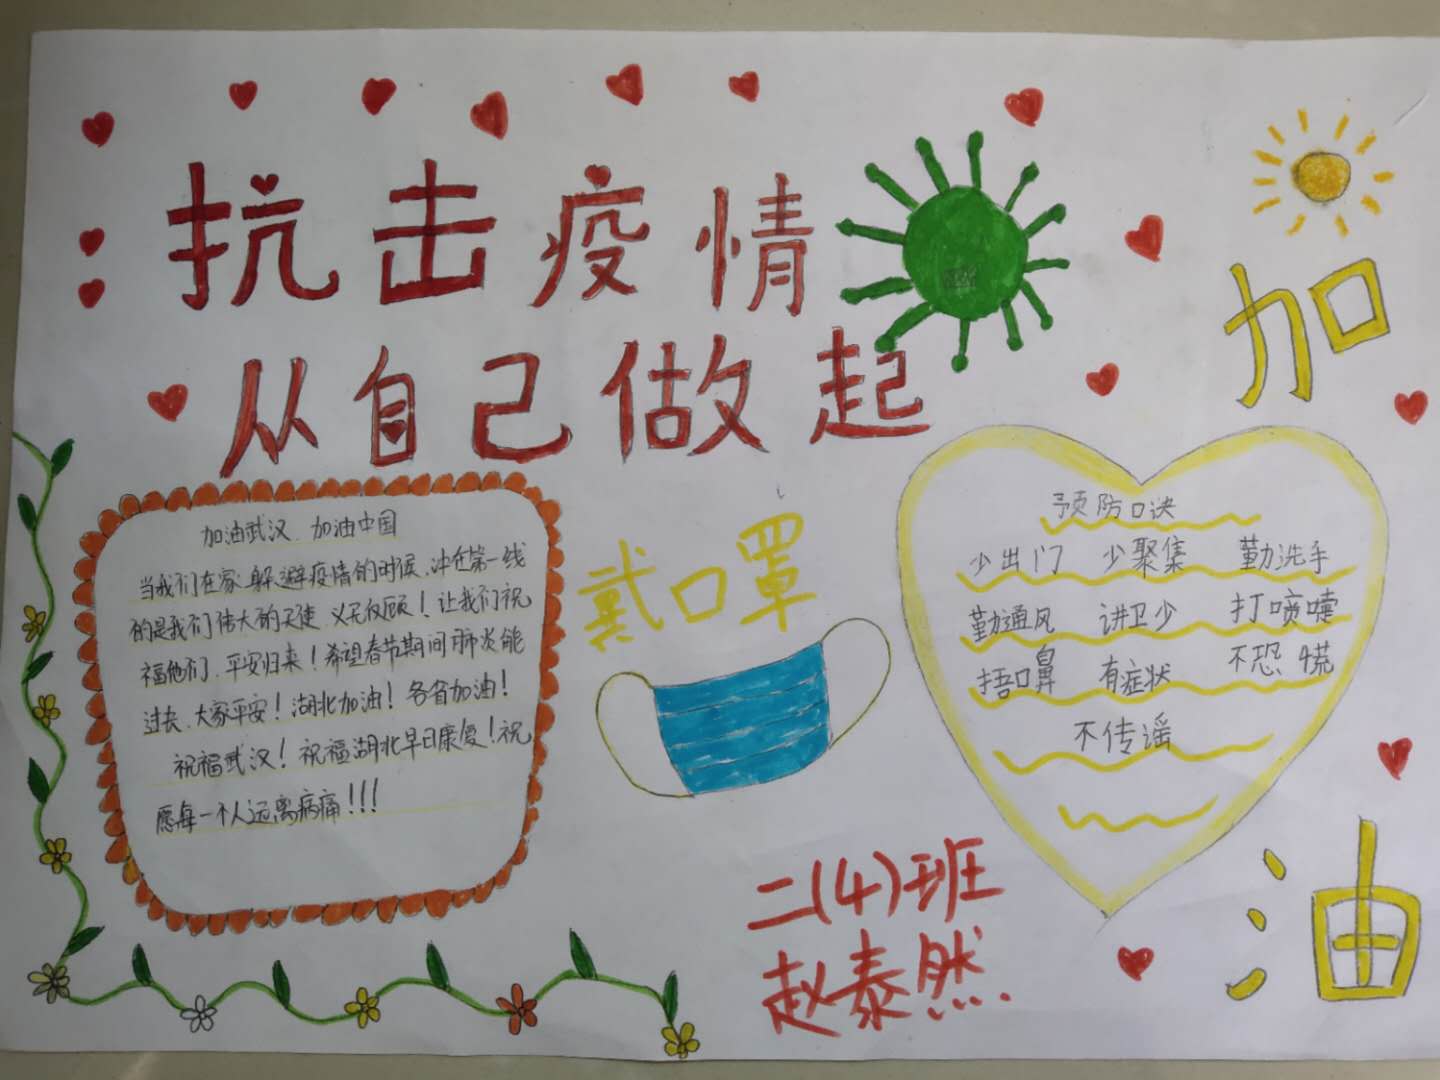 抗击疫情
从自己做起
加油
加油武汉、加油中国
当我们在家躲避疫情的时候,冲在第一线
的是我们伟大的天使 义无反顾!让我们祝
福他们、平安归来!希望春节期间肺炎能
过去、大家平安!湖北加油!各省加油!
祝福武汉!祝福湖北早日康复!祝
愿每一个人远离病痛!!!
戴口罩
预防口诀
少出门 少聚集 勤洗手
勤通风 讲卫少 打喷嚏
捂口鼻 有症状 不恐慌
不传谣
二(4)班
赵泰然